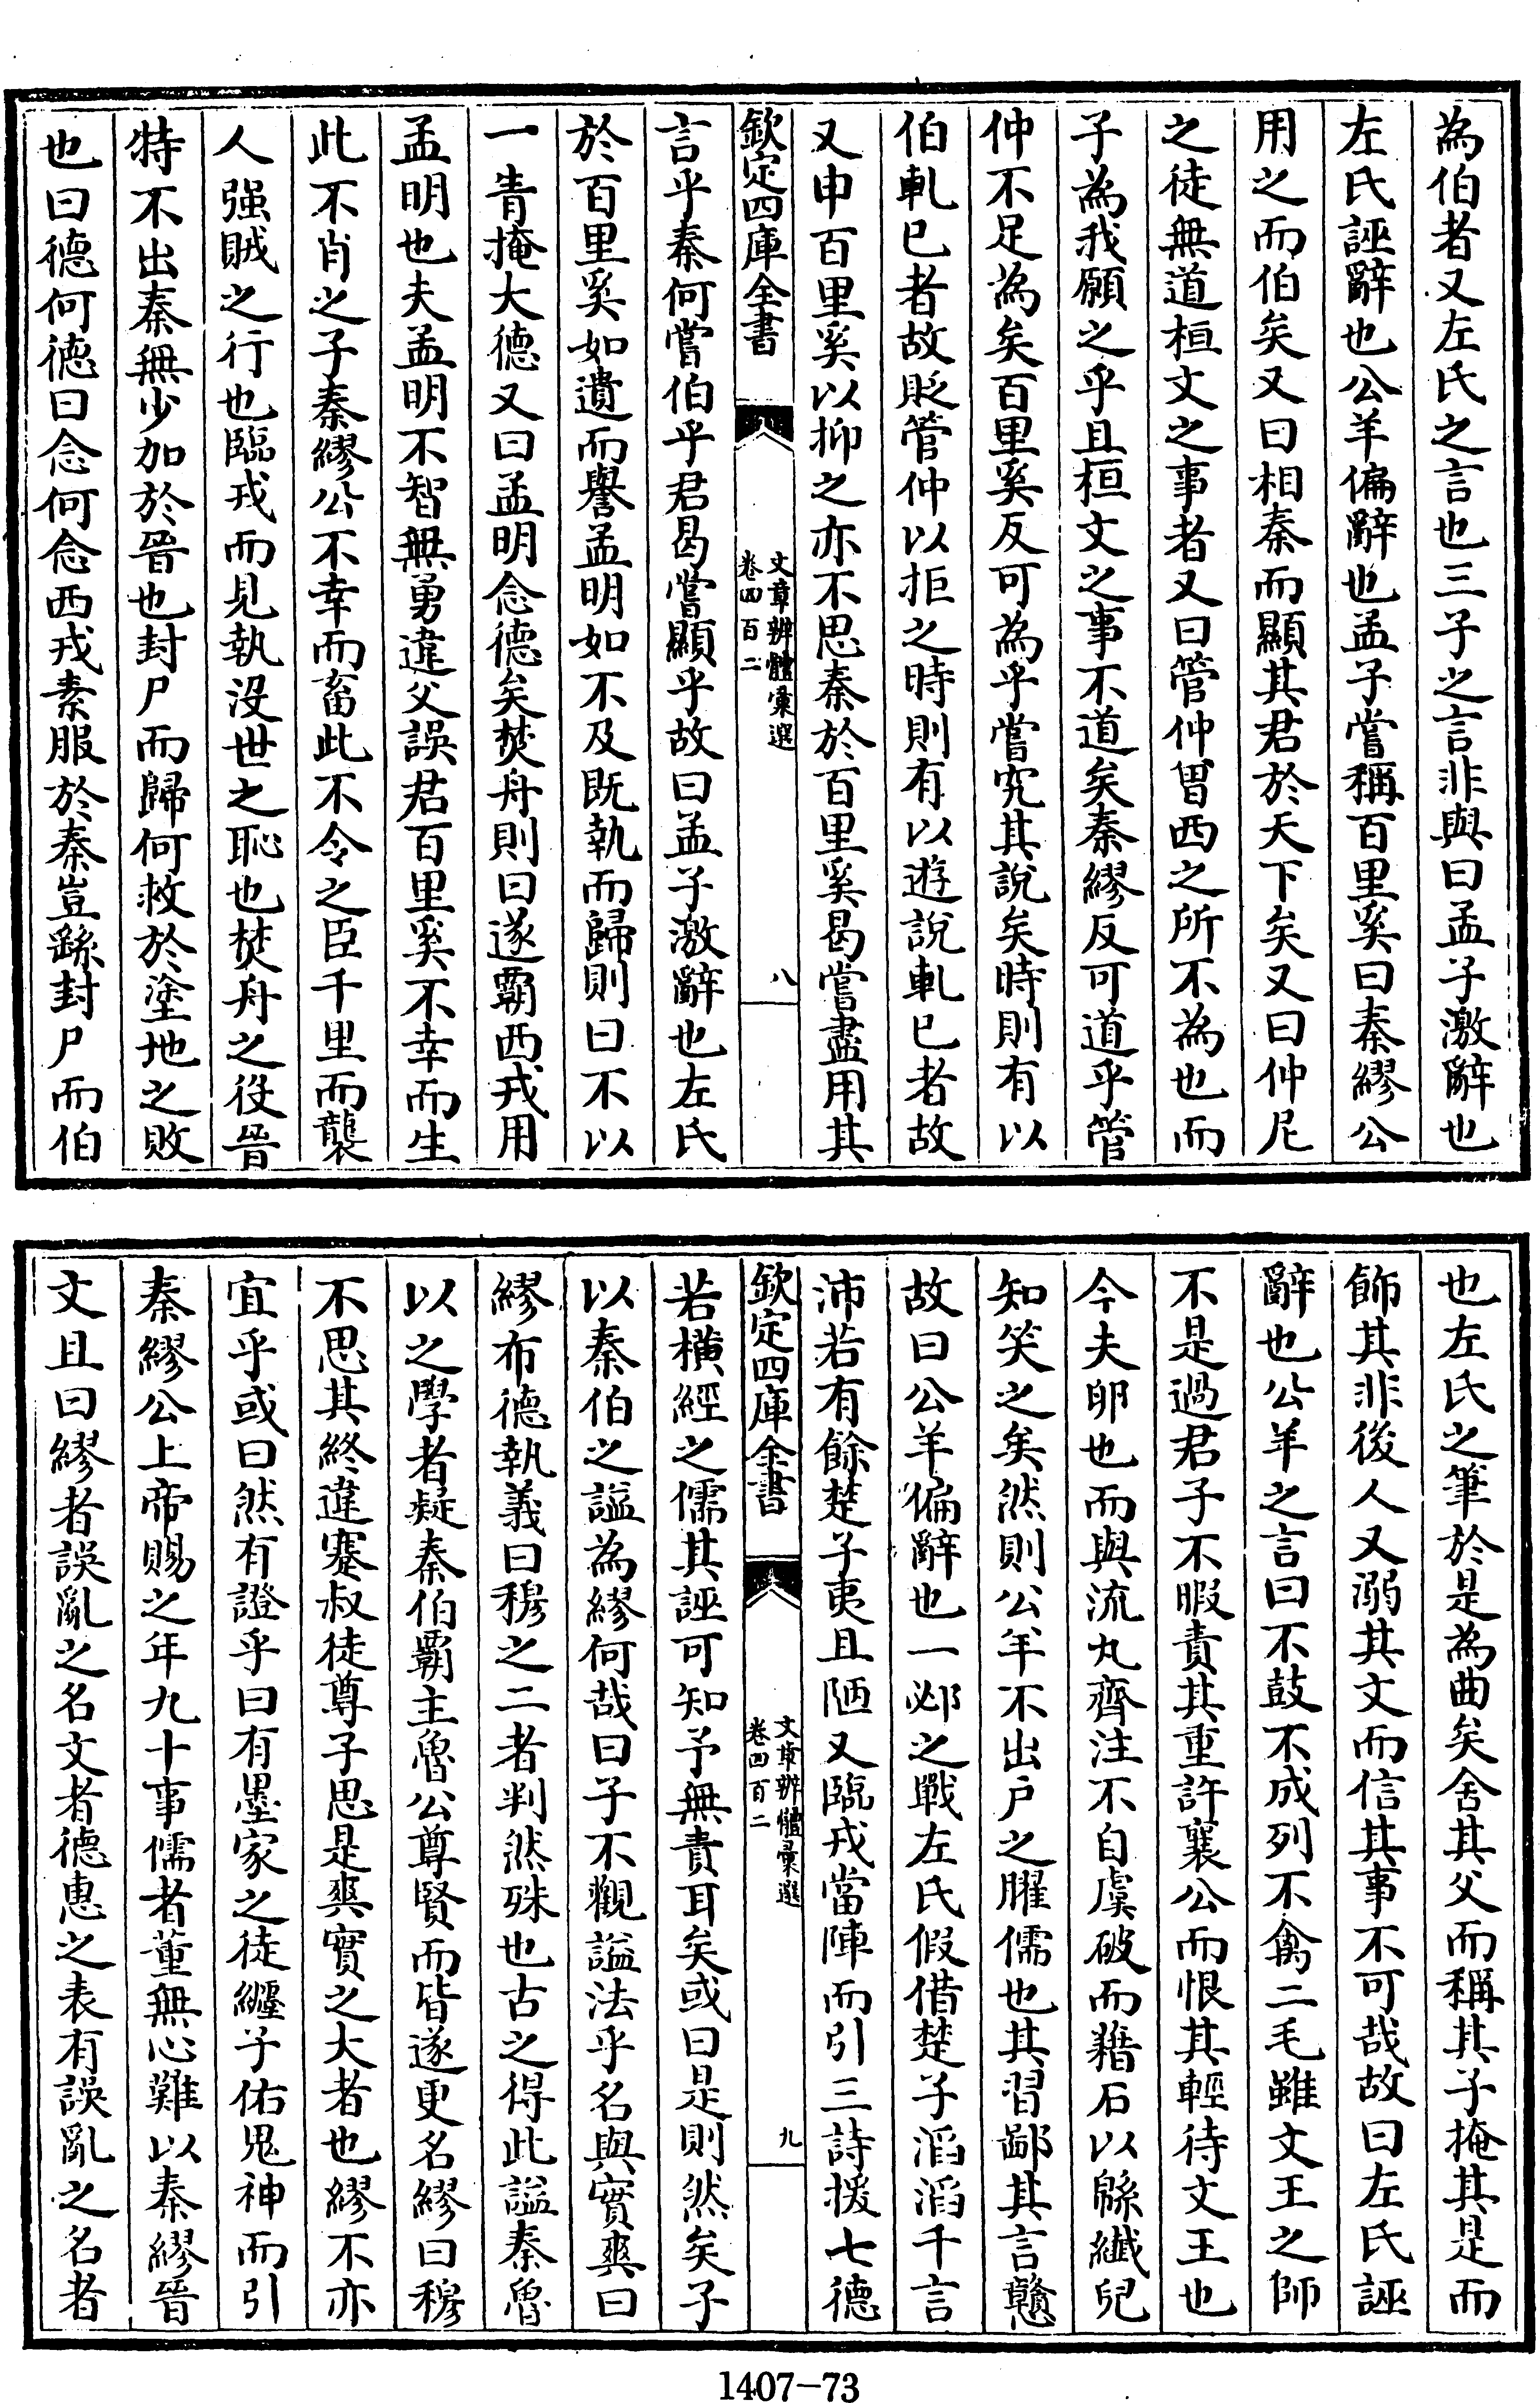 為伯者又左氏之言也三子之言非與曰孟子激辭也
左氏誣辭也公羊偏辭也孟子嘗稱百里奚曰秦繆公
用之而伯矣又曰相秦而顯其君於天下矣又曰仲尼
之徒無道桓文之事者又曰管仲曾西之所不為也而
子為我願之乎且桓文之事不道矣秦繆反可道乎管
仲不足為矣百里奚反可為乎嘗究其說矣時則有以
伯軋已者故貶管仲以拒之時則有以遊說軋已者故
又申百里奚以抑之亦不思秦於百里奚曷嘗盡用其
欽定四庫全書
文章辨體彙選
卷四百二
八
言乎秦何嘗伯乎君曷嘗顯乎故曰孟子激辭也左氏
於百里奚如遺而譽孟明如不及既執而歸則曰不以
一眚掩大德又曰孟明念德矣焚舟則曰遂霸西戎用
孟明也夫孟明不智無勇違父誤君百里奚不幸而生
此不肖之子秦繆公不幸而畜此不令之臣千里而襲
人強賊之行也臨戎而見執沒世之恥也焚舟之役晉
特不出秦無少加於晉也封尸而歸何救於塗地之敗
也曰德何德曰念何念西戎素服於秦豈繇封尸而伯
也左氏之筆於是為曲矣舍其父而稱其子掩其是而
飾其非後人又溺其文而信其事不可哉故曰左氏誣
辭也公羊之言曰不鼓不成列不禽二毛雖文王之師
不是過君子不暇責其重許襄公而恨其輕待文王也
今夫卵也而與流丸齊注不自虞破而藉石以緜纖兒
知笑之矣然則公羊不出户之臞儒也其習鄙其言戇
故曰公羊偏辭也一邲之戰左氏假借楚子滔滔千言
沛若有餘楚子夷且陋又臨戎當陣而引三詩援七德
欽定四庫全書
文章辨體彙選
卷四百二
九
若橫經之儒其誣可知予無責耳矣或曰是則然矣子
以秦伯之諡為繆何哉曰子不觀諡法乎名與實爽曰
繆布德執義曰穆之二者判然殊也古之得此諡秦魯
以之學者疑秦伯霸主魯公尊賢而皆遂更名繆曰穆
不思其終違蹇叔徒尊子思是爽實之大者也繆不亦
宜乎或曰然有證乎曰有墨家之徒纏子佑鬼神而引
秦繆公上帝賜之年九十事儒者董無心難以秦繆晉
文且曰繆者誤亂之名文者德惠之表有誤亂之名者
1407-73